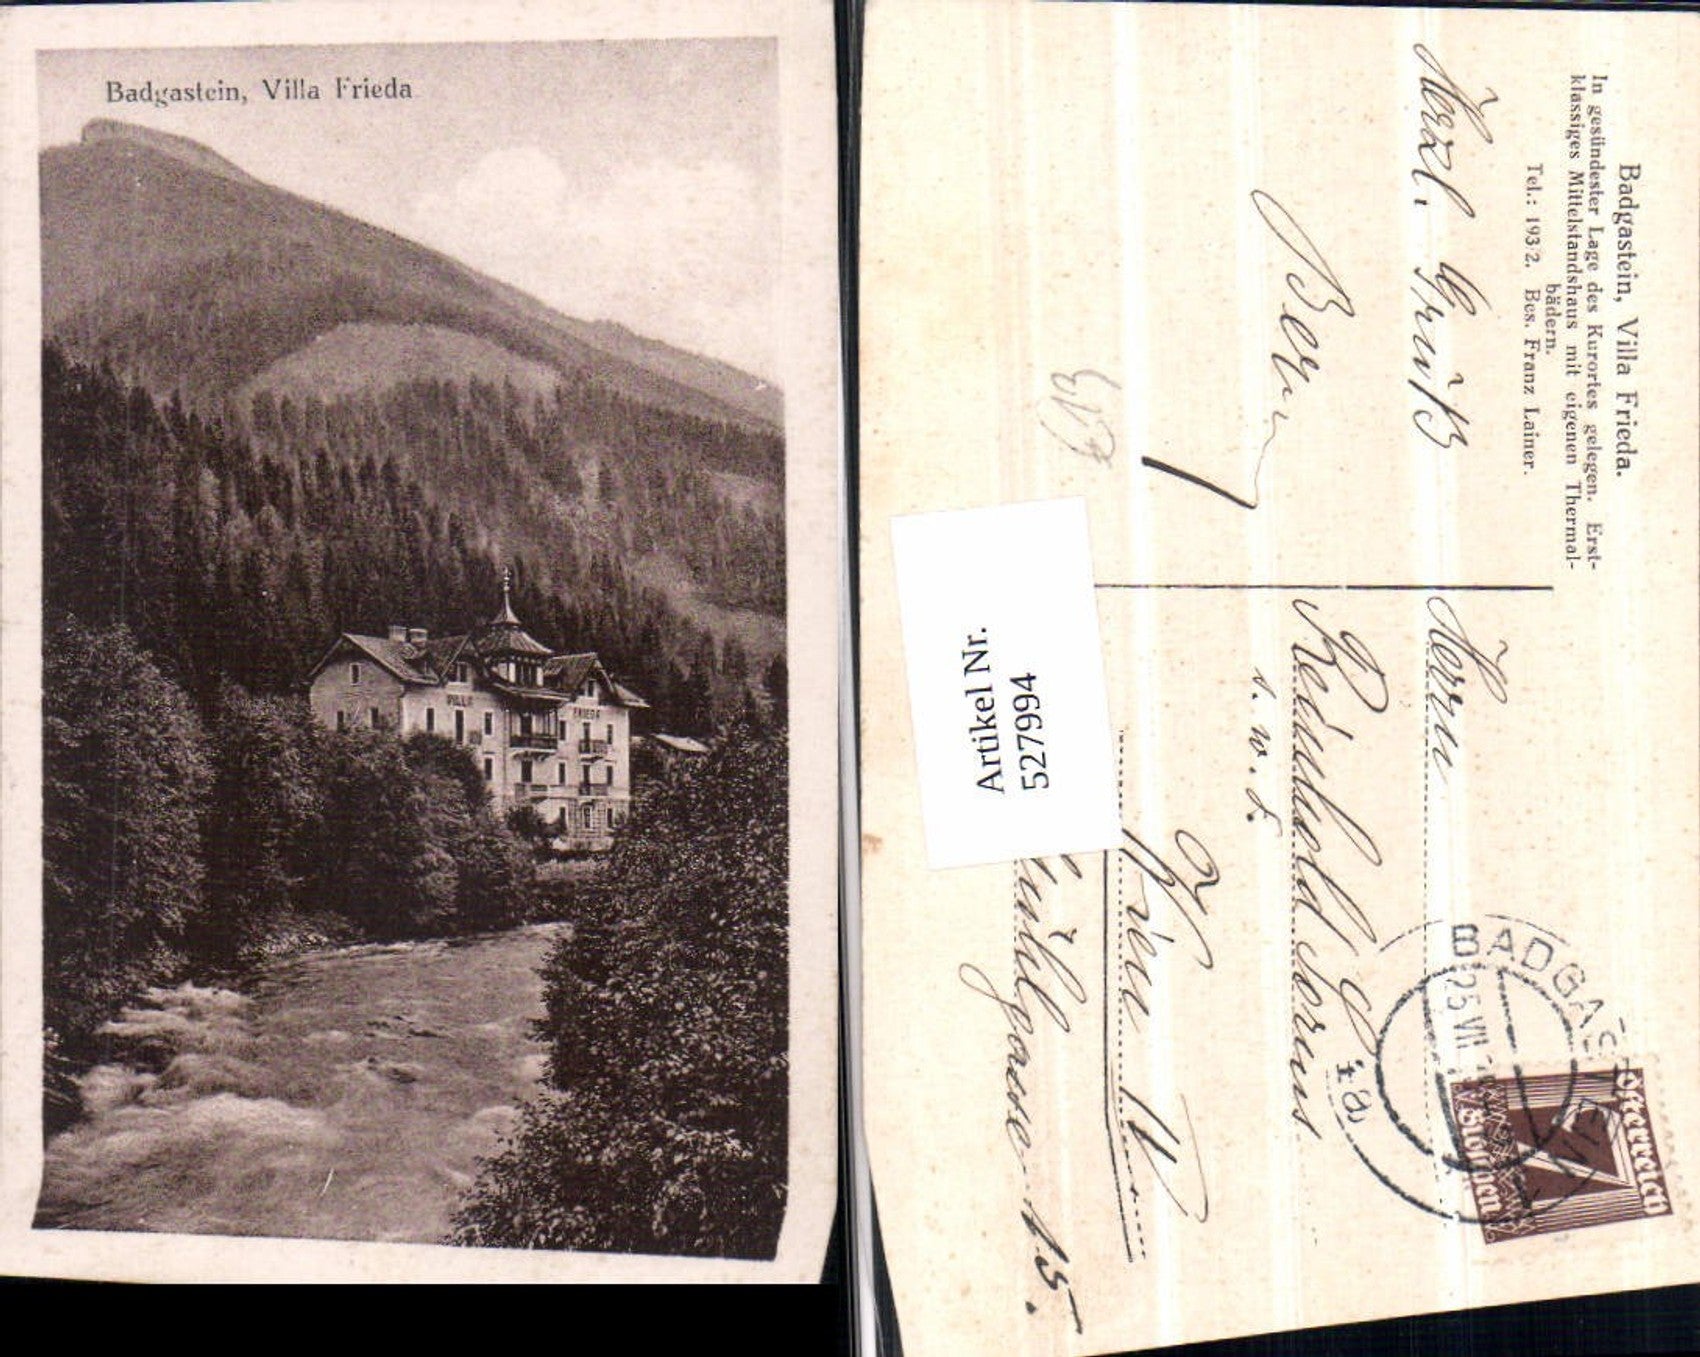 Badgastein, Villa Frieda
VILLA FRIEDA
Badgastein, Villa Frieda.
In gesündester Lage des Kurortes gelegen. Erst-
klassiges Mittelstandshaus mit eigenen Thermal-
bädern.
Tel.: 193/2. Bes. Franz Lainer.
Herzl. Gruß
Artikel Nr.
5279994
Herrn
Reinhold Sorns
s. w. F.
Wien IV
Mühlgasse 15.
BADGASTEIN
25 VII
Österreich
7
Groschen